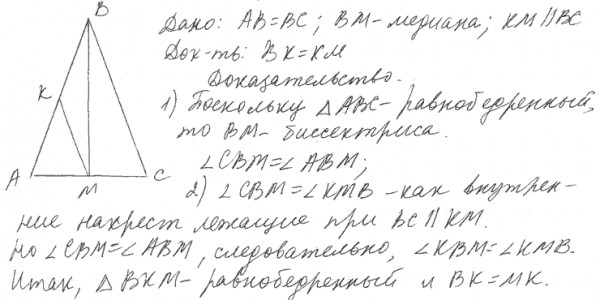 B
K
A
M
C
Дано: AB=BC; BM-медиана; KM||BC
Док-ть: BK=KM
Доказательство.
1) Поскольку △ABC-равнобедренный,
то BM-биссектриса.
∠CBM=∠ABM;
2) ∠CBM=∠KMB -как внутрен-
ние накрест лежащие при BC||KM.
Но ∠CBM=∠ABM, следовательно, ∠KBM=∠KMB.
Итак, △BKM-равнобедренный и BK=MK.